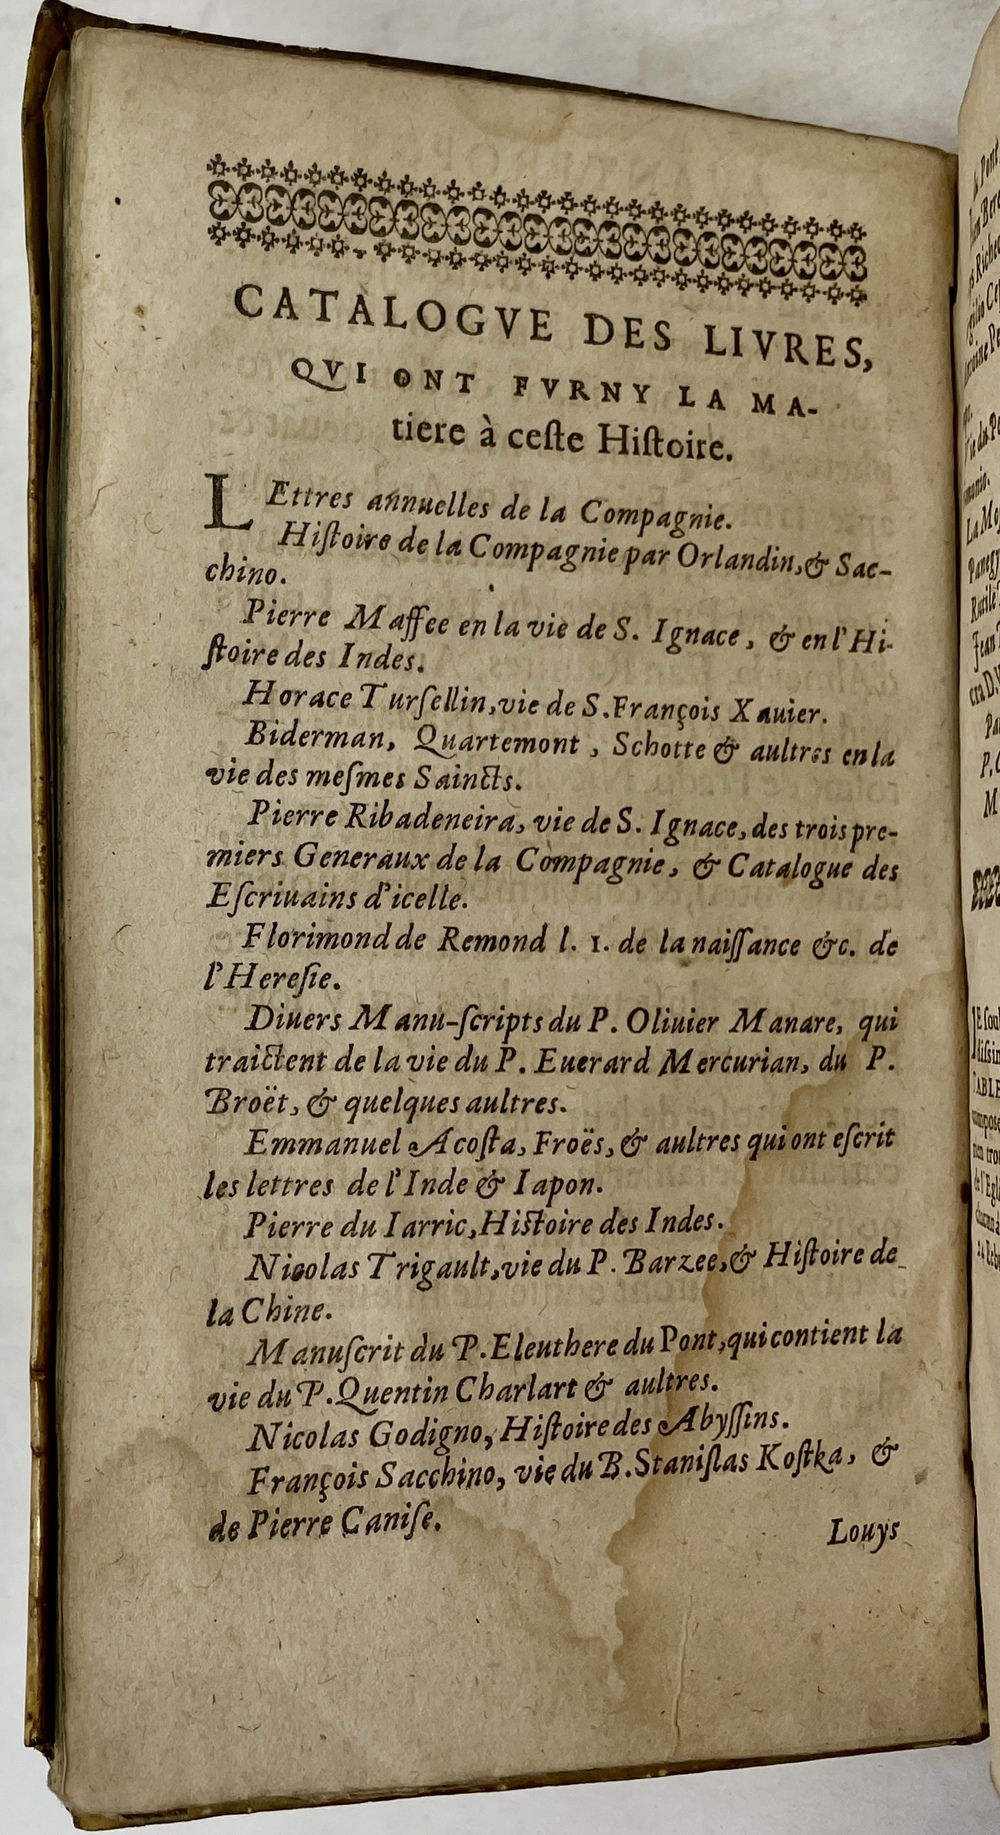 CATALOGVE DES LIVRES,
QVI ONT FVRNY LA MA-
tiere à ceſte Hiſtoire.
LEttres annuelles de la Compagnie.
Hiſtoire de la Compagnie par Orlandin, & Sac-
chino.
Pierre Maffee en la vie de S. Ignace, & en l'Hi-
ſtoire des Indes.
Horace Turſellin, vie de S. François Xauier.
Biderman, Quartemont, Schotte & aultres en la
vie des meſmes Saincts.
Pierre Ribadeneira, vie de S. Ignace, des trois pre-
miers Generaux de la Compagnie, & Catalogue des
Eſcriuains d'icelle.
Florimond de Remond l. 1. de la naiſſance &c. de
l'Hereſie.
Diuers Manu-ſcripts du P. Oliuier Manare, qui
traictent de la vie du P. Euerard Mercurian, du P.
Broët, & quelques aultres.
Emmanuel Acoſta, Froës, & aultres qui ont eſcrit
les lettres de l'Inde & Iapon.
Pierre du Iarric, Hiſtoire des Indes.
Nicolas Trigault, vie du P. Barzee, & Hiſtoire de
la Chine.
Manuſcrit du P. Eleuthere du Pont, qui contient la
vie du P. Quentin Charlart & aultres.
Nicolas Godigno, Hiſtoire des Abyſſins.
François Sacchino, vie du B. Staniſlas Koſtka, &
de Pierre Caniſe.
Louys